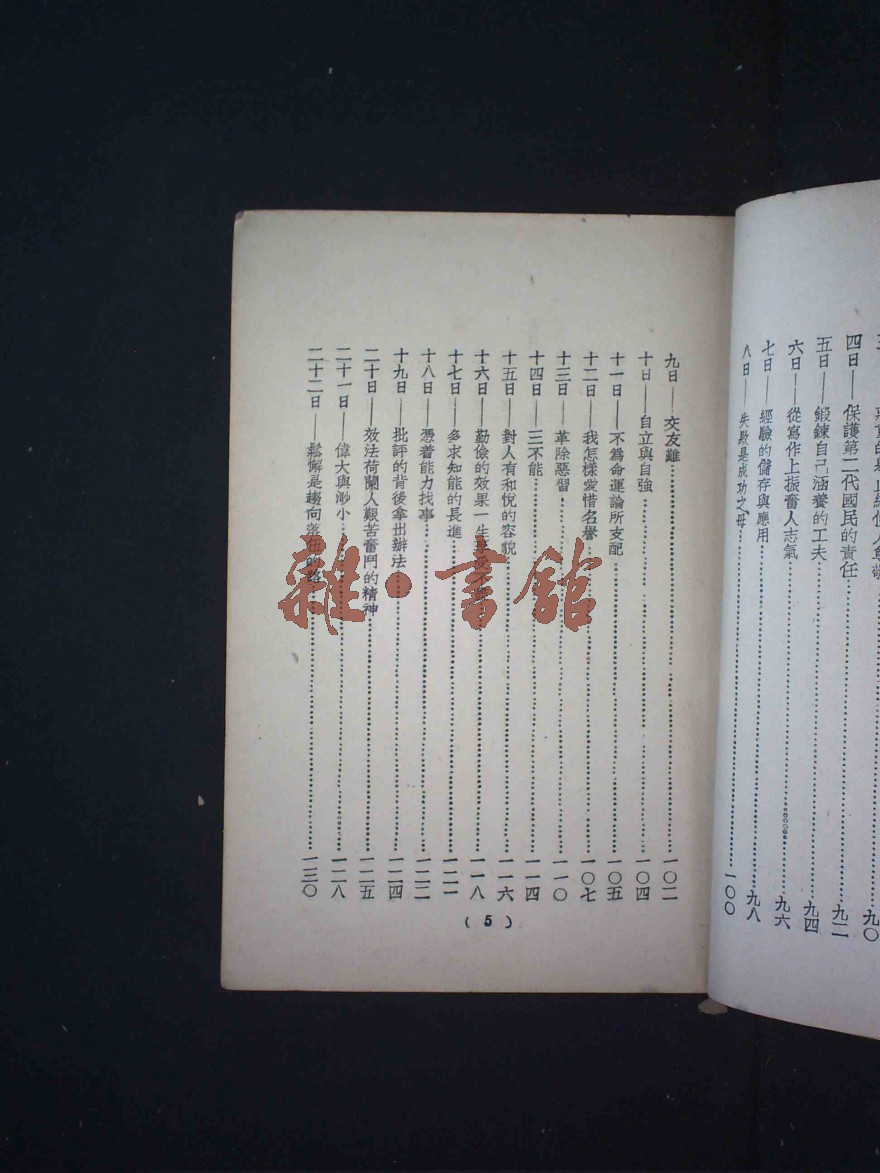 四日——保護第二代國民的責任……九二
五日——鍛鍊自己涵養的工夫……九四
六日——從寫作上振奮人志氣……九六
七日——經驗的儲存與應用……九八
八日——失敗是成功之母……一〇〇
九日——交友難……一〇二
十日——自立與自強……一〇四
十一日——不為命運論所支配……一〇五
十二日——我怎樣愛惜名譽……一〇七
十三日——革除惡習……一一〇
十四日——三不能……一一四
十五日——對人有和悅的容貌……一一六
十六日——勤儉的效果一生享受不……一一八
十七日——多求知能的長進……一二一
十八日——憑着能力找事……一二二
十九日——批評的背後拿出辦法……一二四
二十日——效法荷蘭人艱苦奮鬥的精神……一二五
二十一日——偉大與渺小……一二八
二十二日——鬆懈是趨向落伍的路……一三〇
(5)
雜·書館